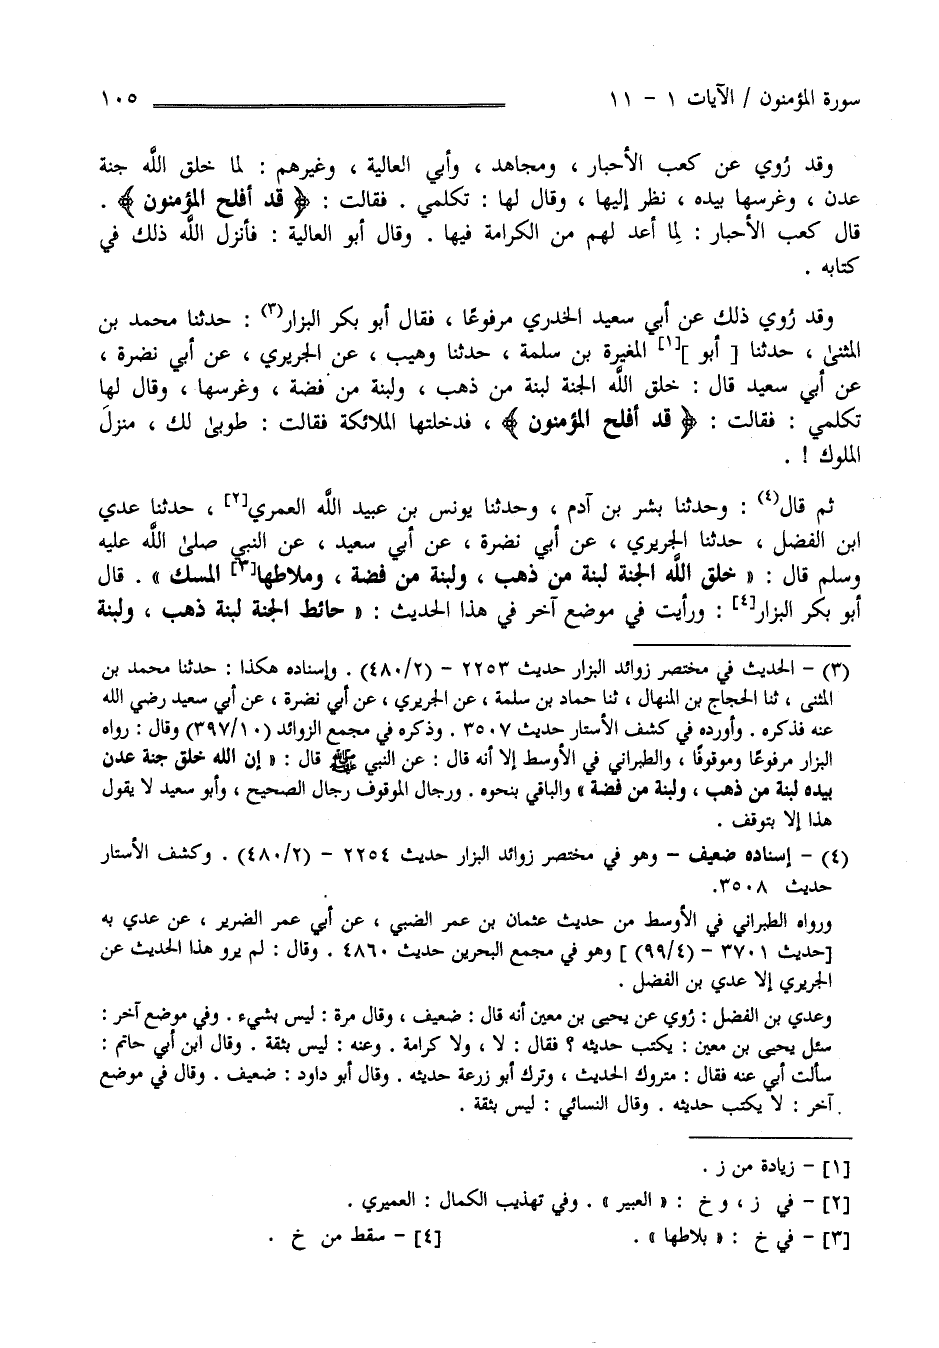 سورة المؤمنون / الآيات ١ - ١١ ١٠٥
وقد رُوي عن كعب الأحبار ، ومجاهد ، وأبي العالية ، وغيرهم : لما خلق اللَّه جنة
عدن ، وغرسها بيده ، نظر إليها ، وقال لها : تكلمي . فقالت : ﴿ قد أفلح المؤمنون ﴾ .
قال كعب الأحبار : لِما أعد لهم من الكرامة فيها . وقال أبو العالية : فأنزل اللَّه ذلك في
كتابه .
وقد رُوي ذلك عن أبي سعيد الخدري مرفوعًا ، فقال أبو بكر البزار(٣) : حدثنا محمد بن
المثنىٰ ، حدثنا [ أبو ][١] المغيرة بن سلمة ، حدثنا وهيب ، عن الجريري ، عن أبي نضرة ،
عن أبي سعيد قال : خلق اللَّه الجنة لبنة من ذهب ، ولبنة من فضة ، وغرسها ، وقال لها
تكلمي : فقالت : ﴿ قد أفلح المؤمنون ﴾ ، فدخلتها الملائكة فقالت : طوبىٰ لك ، منزلَ
الملوك ! .
ثم قال(٤) : وحدثنا بشر بن آدم ، وحدثنا يونس بن عبيد اللَّه العمري[٢] ، حدثنا عدي
ابن الفضل ، حدثنا الجريري ، عن أبي نضرة ، عن أبي سعيد ، عن النبي صلىٰ اللَّه عليه
وسلم قال : « خلق اللَّه الجنة لبنة من ذهب ، ولبنة من فضة ، وملاطها[٣] المسك » . قال
أبو بكر البزار[٤] : ورأيت في موضع آخر في هذا الحديث : « حائط الجنة لبنة ذهب ، ولبنة
(٣) - الحديث في مختصر زوائد البزار حديث ٢٢٥٣ - (٤٨٠/٢) . وإسناده هكذا : حدثنا محمد بن
المثنى ، ثنا الحجاج بن المنهال ، ثنا حماد بن سلمة ، عن الجريري ، عن أبي نضرة ، عن أبي سعيد رضي الله
عنه فذكره . وأورده في كشف الأستار حديث ٣٥٠٧ . وذكره في مجمع الزوائد (٣٩٧/١٠) وقال : رواه
البزار مرفوعًا وموقوفًا ، والطبراني في الأوسط إلا أنه قال : عن النبي ﷺ قال : « إن الله خلق جنة عدن
بيده لبنة من ذهب ، ولبنة من فضة » والباقي بنحوه . ورجال الموقوف رجال الصحيح ، وأبو سعيد لا يقول
هذا إلا بتوقف .
(٤) - إسناده ضعيف - وهو في مختصر زوائد البزار حديث ٢٢٥٤ - (٤٨٠/٢) . وكشف الأستار
حديث ٣٥٠٨.
ورواه الطبراني في الأوسط من حديث عثمان بن عمر الضبي ، عن أبي عمر الضرير ، عن عدي به
[حديث ٣٧٠١ - (٩٩/٤) ] وهو في مجمع البحرين حديث ٤٨٦٠ . وقال : لم يرو هذا الحديث عن
الجريري إلا عدي بن الفضل .
وعدي بن الفضل : رُوي عن يحيى بن معين أنه قال : ضعيف ، وقال مرة : ليس بشيء . وفي موضع آخر :
سئل يحيى بن معين : يكتب حديثه ؟ فقال : لا ، ولا كرامة . وعنه : ليس بثقة . وقال ابن أبي حاتم :
سألت أبي عنه فقال : متروك الحديث ، وترك أبو زرعة حديثه . وقال أبو داود : ضعيف . وقال في موضع
آخر : لا يكتب حديثه . وقال النسائي : ليس بثقة .
[١] - زيادة من ز .
[٢] - في ز ، و خ : « العبير » . وفي تهذيب الكمال : العميري .
[٣] - في خ : « بلاطها » . [٤] - سقط من خ .